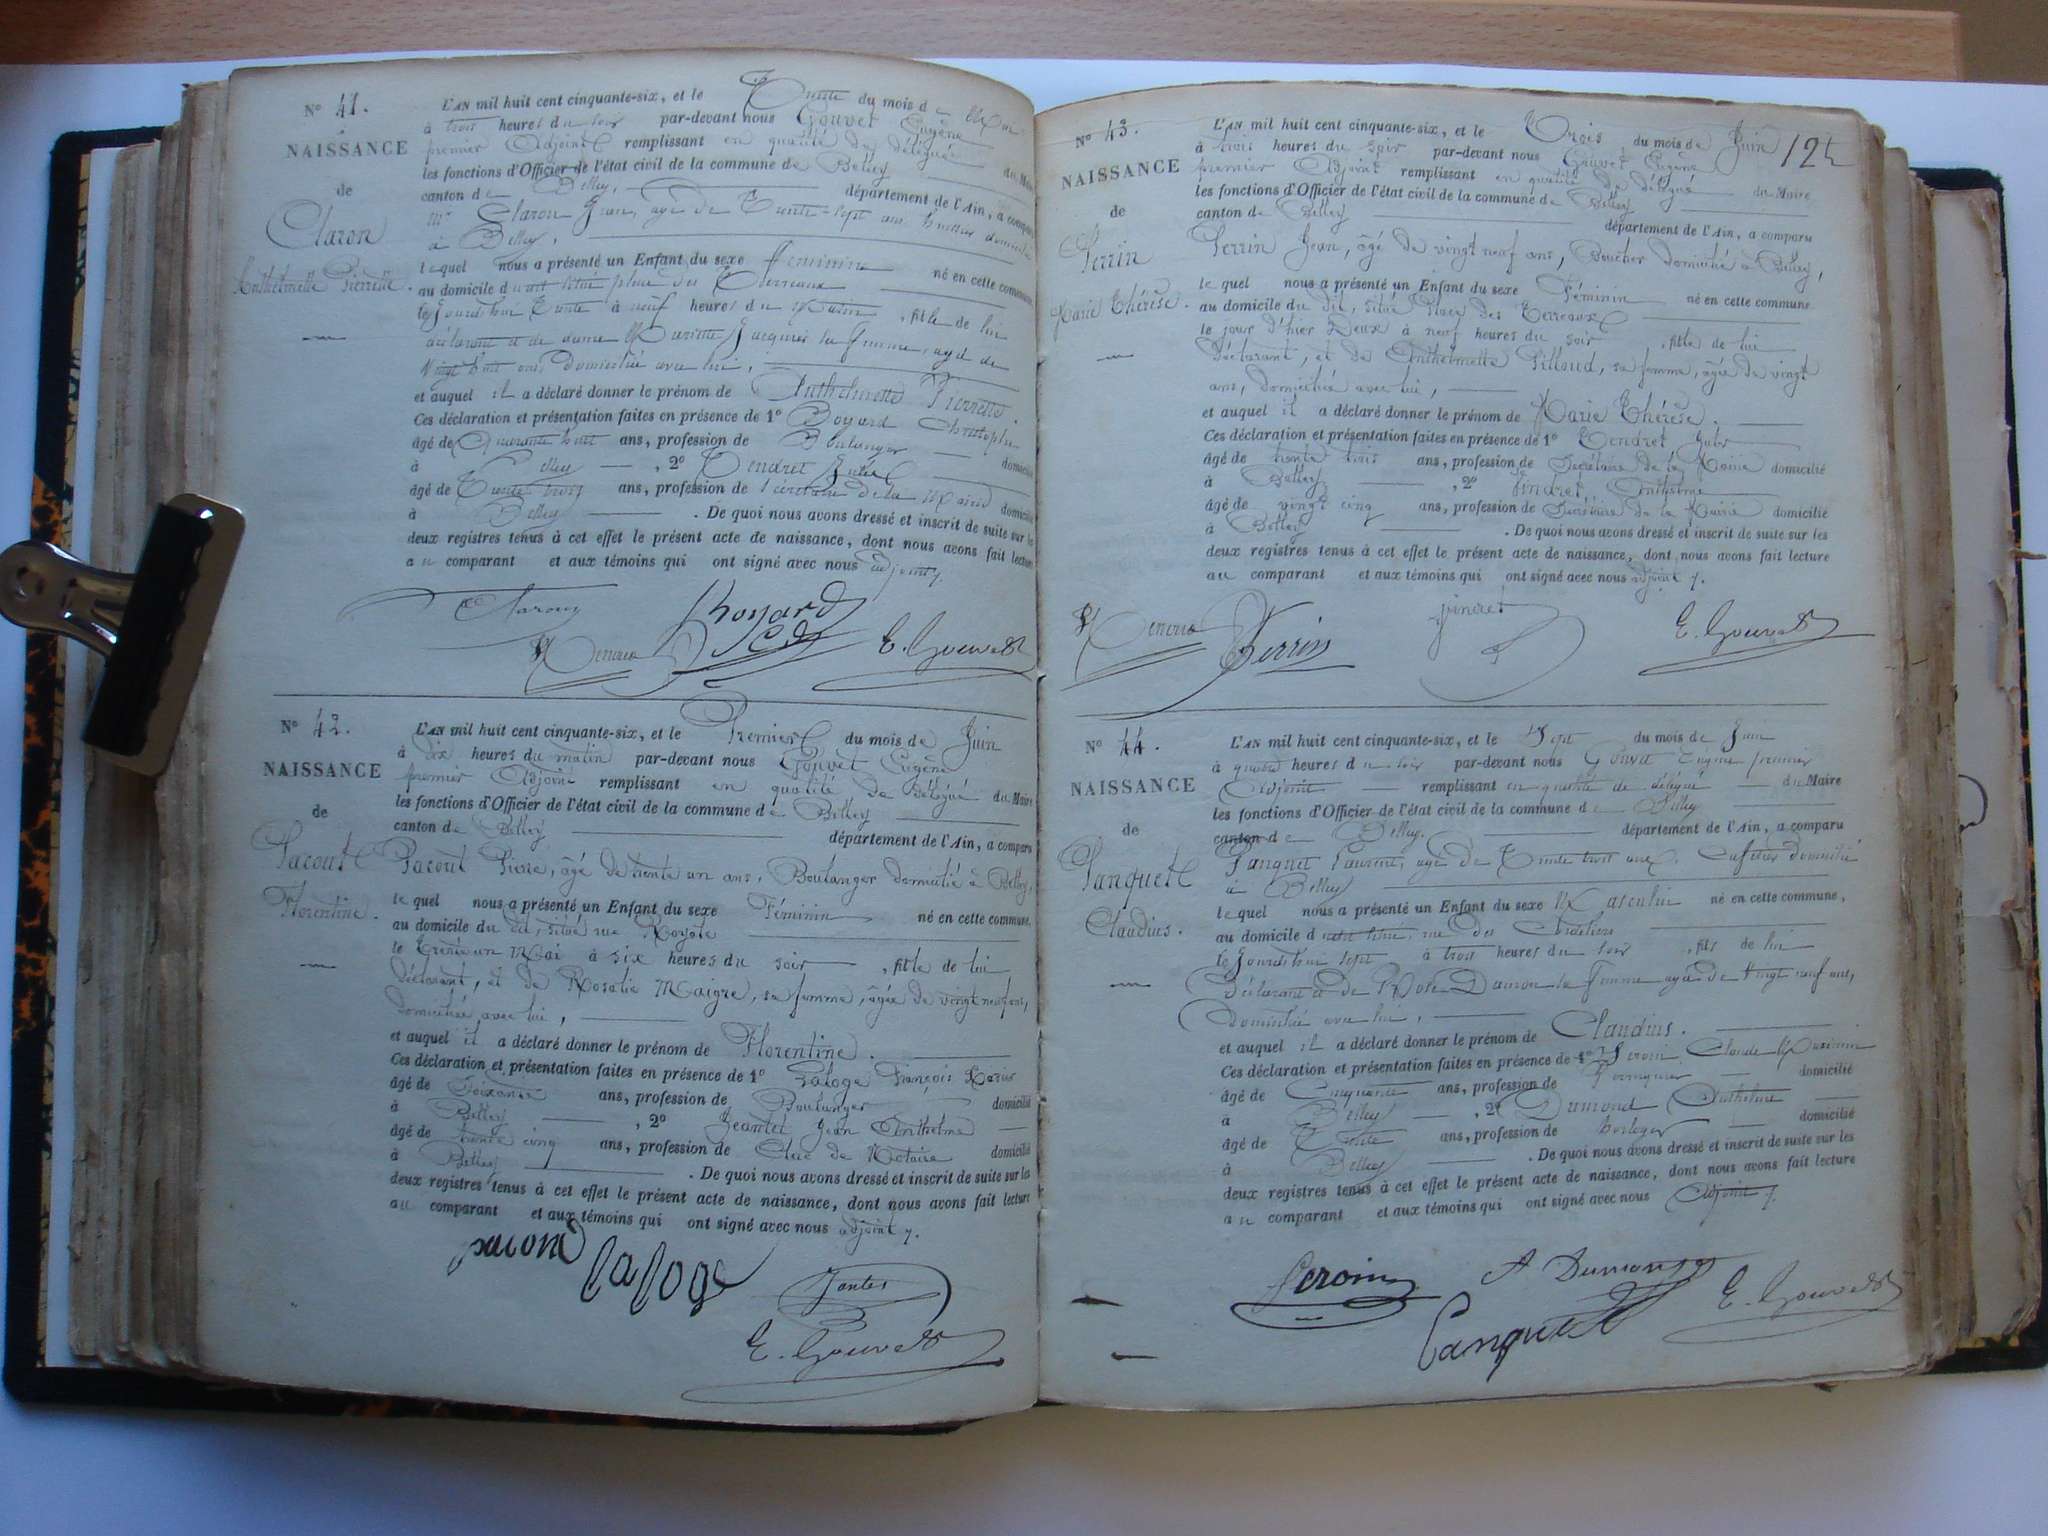 N° 41.
NAISSANCE
de
Claron
Anthelmette Pierrette.
L'AN mil huit cent cinquante-six, et le Trente du mois de Mai
à trois heures du soir par-devant nous Gouvet Eugène
premier Adjoint remplissant en qualité de délégué du Maire
les fonctions d'Officier de l'état civil de la commune de Belley
canton de Belley, département de l'Ain, a comparu
Mr Claron Jean, agé de Trente-sept ans huissier domicilié
à Belley,
lequel nous a présenté un Enfant du sexe Féminin né en cette commune
au domicile du dit situé place des Terreaux
le Jourd'hui Trente à neuf heures du Matin, fille de lui
déclarant et de dame Mariette Jacquier sa Femme, agée de
Vingt huit ans, domiciliée avec lui,
et auquel il a déclaré donner le prénom de Anthelmette Pierrette
Ces déclaration et présentation faites en présence de 1° Boyard Christophe
âgé de Quarante huit ans, profession de Boulanger domicilié
à Belley, 2° Tendret Jules
âgé de Trente trois ans, profession de Secrétaire de la Mairie domicilié
à Belley. De quoi nous avons dressé et inscrit de suite sur les
deux registres tenus à cet effet le présent acte de naissance, dont nous avons fait lecture
au comparant et aux témoins qui ont signé avec nous adjoint,
Claron Boyard
Tendret E. Gouvet
N° 42.
NAISSANCE
de
Pacout
Florentine.
L'AN mil huit cent cinquante-six, et le Premier du mois de Juin
à dix heures du matin par-devant nous Gouvet Eugène
premier Adjoint remplissant en qualité de délégué du Maire
les fonctions d'Officier de l'état civil de la commune de Belley
canton de Belley département de l'Ain, a comparu
Pacout Pierre, âgé de trente un ans, Boulanger domicilié à Belley,
lequel nous a présenté un Enfant du sexe Féminin né en cette commune.
au domicile du dit, situé rue Royale
le Trente un Mai à six heures du soir, fille de lui
déclarant, et de Rosalie Maigre, sa femme, âgée de vingt neuf ans,
domiciliée avec lui,
et auquel il a déclaré donner le prénom de Florentine.
Ces déclaration et présentation faites en présence de 1° Laloge François Marie
âgé de Soixante ans, profession de Boulanger domicilié
à Belley, 2° Jeantet Jean Anthelme
âgé de trente cinq ans, profession de Clerc de Notaire domicilié
à Belley. De quoi nous avons dressé et inscrit de suite sur les
deux registres tenus à cet effet le présent acte de naissance, dont nous avons fait lecture
au comparant et aux témoins qui ont signé avec nous adjoint,.
pacout laloge
E. Gouvet
124
N° 43.
NAISSANCE
de
Perrin
Marie Thérèse.
L'AN mil huit cent cinquante-six, et le Trois du mois de Juin
à trois heures du soir par-devant nous Gouvet Eugène
premier Adjoint remplissant en qualité de délégué du Maire
les fonctions d'Officier de l'état civil de la commune de Belley
canton de Belley département de l'Ain, a comparu
Perrin Jean, âgé de vingt neuf ans, Boucher domicilié à Belley,
lequel nous a présenté un Enfant du sexe Féminin né en cette commune
au domicile du dit, situé Place des Terreaux
le jour d'hier Deux à neuf heures du soir, fille de lui
déclarant, et de Anthelmette Billoud, sa femme, âgée de vingt
ans, domiciliée avec lui,
et auquel il a déclaré donner le prénom de Marie Thérèse.
Ces déclaration et présentation faites en présence de 1° Tendret Jules
âgé de trente trois ans, profession de Secrétaire de la Mairie domicilié
à Belley, 2° Jindret Anthelme
âgé de vingt cinq ans, profession de Secrétaire de la Mairie domicilié
à Belley. De quoi nous avons dressé et inscrit de suite sur les
deux registres tenus à cet effet le présent acte de naissance, dont nous avons fait lecture
au comparant et aux témoins qui ont signé avec nous adjoint,.
Tendret Perrin jindret E. Gouvet
N° 44.
NAISSANCE
de
Panquet
Claudius.
L'AN mil huit cent cinquante-six, et le Sept du mois de Juin
à quatre heures du soir par-devant nous Gouvet Eugène premier
Adjoint remplissant en qualité de délégué du Maire
les fonctions d'Officier de l'état civil de la commune de Belley
canton de Belley. département de l'Ain, a comparu
Panquet Laurent, agé de Trente trois ans, Cafetier domicilié
à Belley
lequel nous a présenté un Enfant du sexe Masculin né en cette commune,
au domicile du dit situé, rue des
le Jourd'hui sept à trois heures du soir, fils de lui
Déclarant et de Rose Damon sa Femme agée de Vingt neuf ans,
Domiciliée avec lui,
et auquel il a déclaré donner le prénom de Claudius.
Ces déclaration et présentation faites en présence de 1° Seroin Claude Maximin
âgé de Cinquante ans, profession de domicilié
à Belley, 2° Dumond Anthelme
âgé de Trente ans, profession de horloger domicilié
à Belley. De quoi nous avons dressé et inscrit de suite sur les
deux registres tenus à cet effet le présent acte de naissance, dont nous avons fait lecture
au comparant et aux témoins qui ont signé avec nous Adjoint,.
Seroin A Dumond
Panquet E. Gouvet